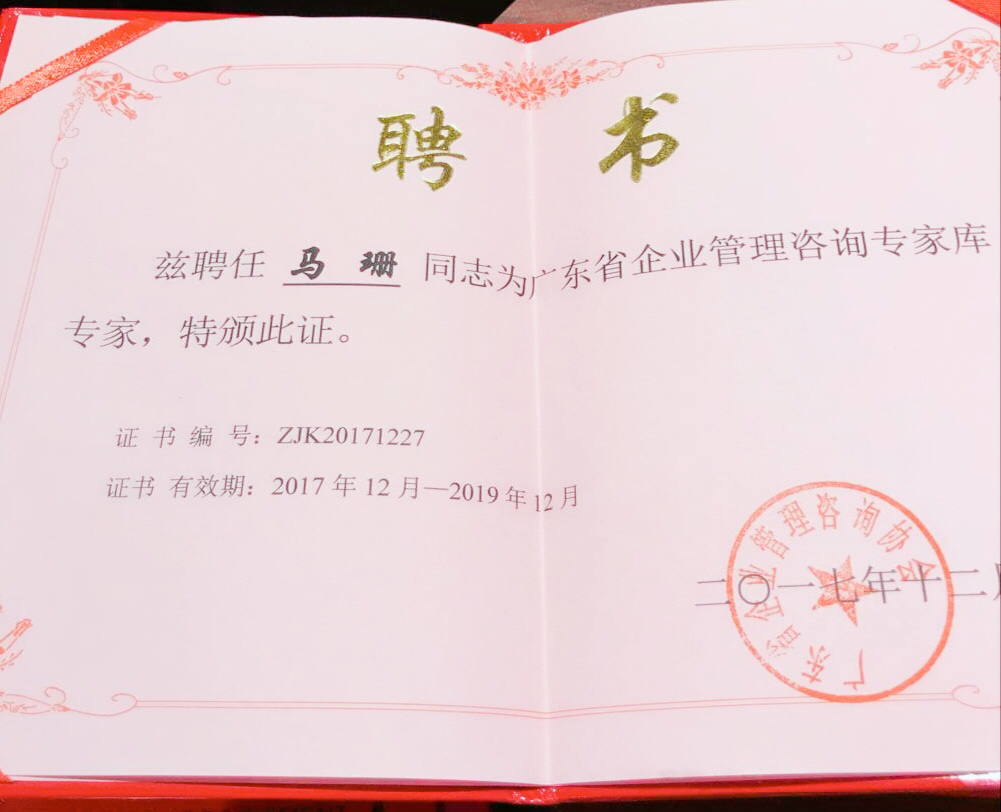 聘 书
兹聘任 马 珊 同志为广东省企业管理咨询专家库
专家，特颁此证。
证 书 编 号：ZJK20171227
证书 有效期：2017 年 12 月—2019 年 12 月
广东省企业管理咨询协会
二〇一七年十二月